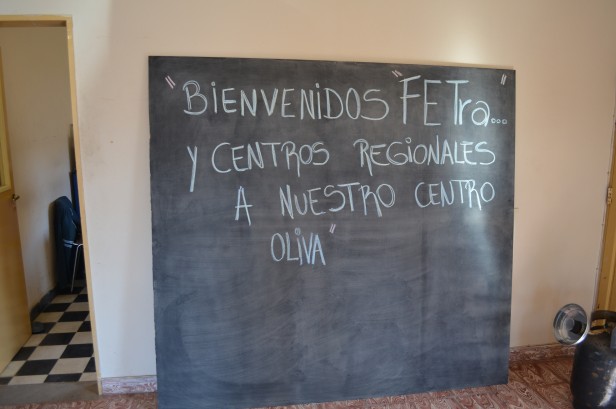 "BIENVENIDOS "FETra..."
Y CENTROS REGIONALES
A NUESTRO CENTRO
OLIVA"